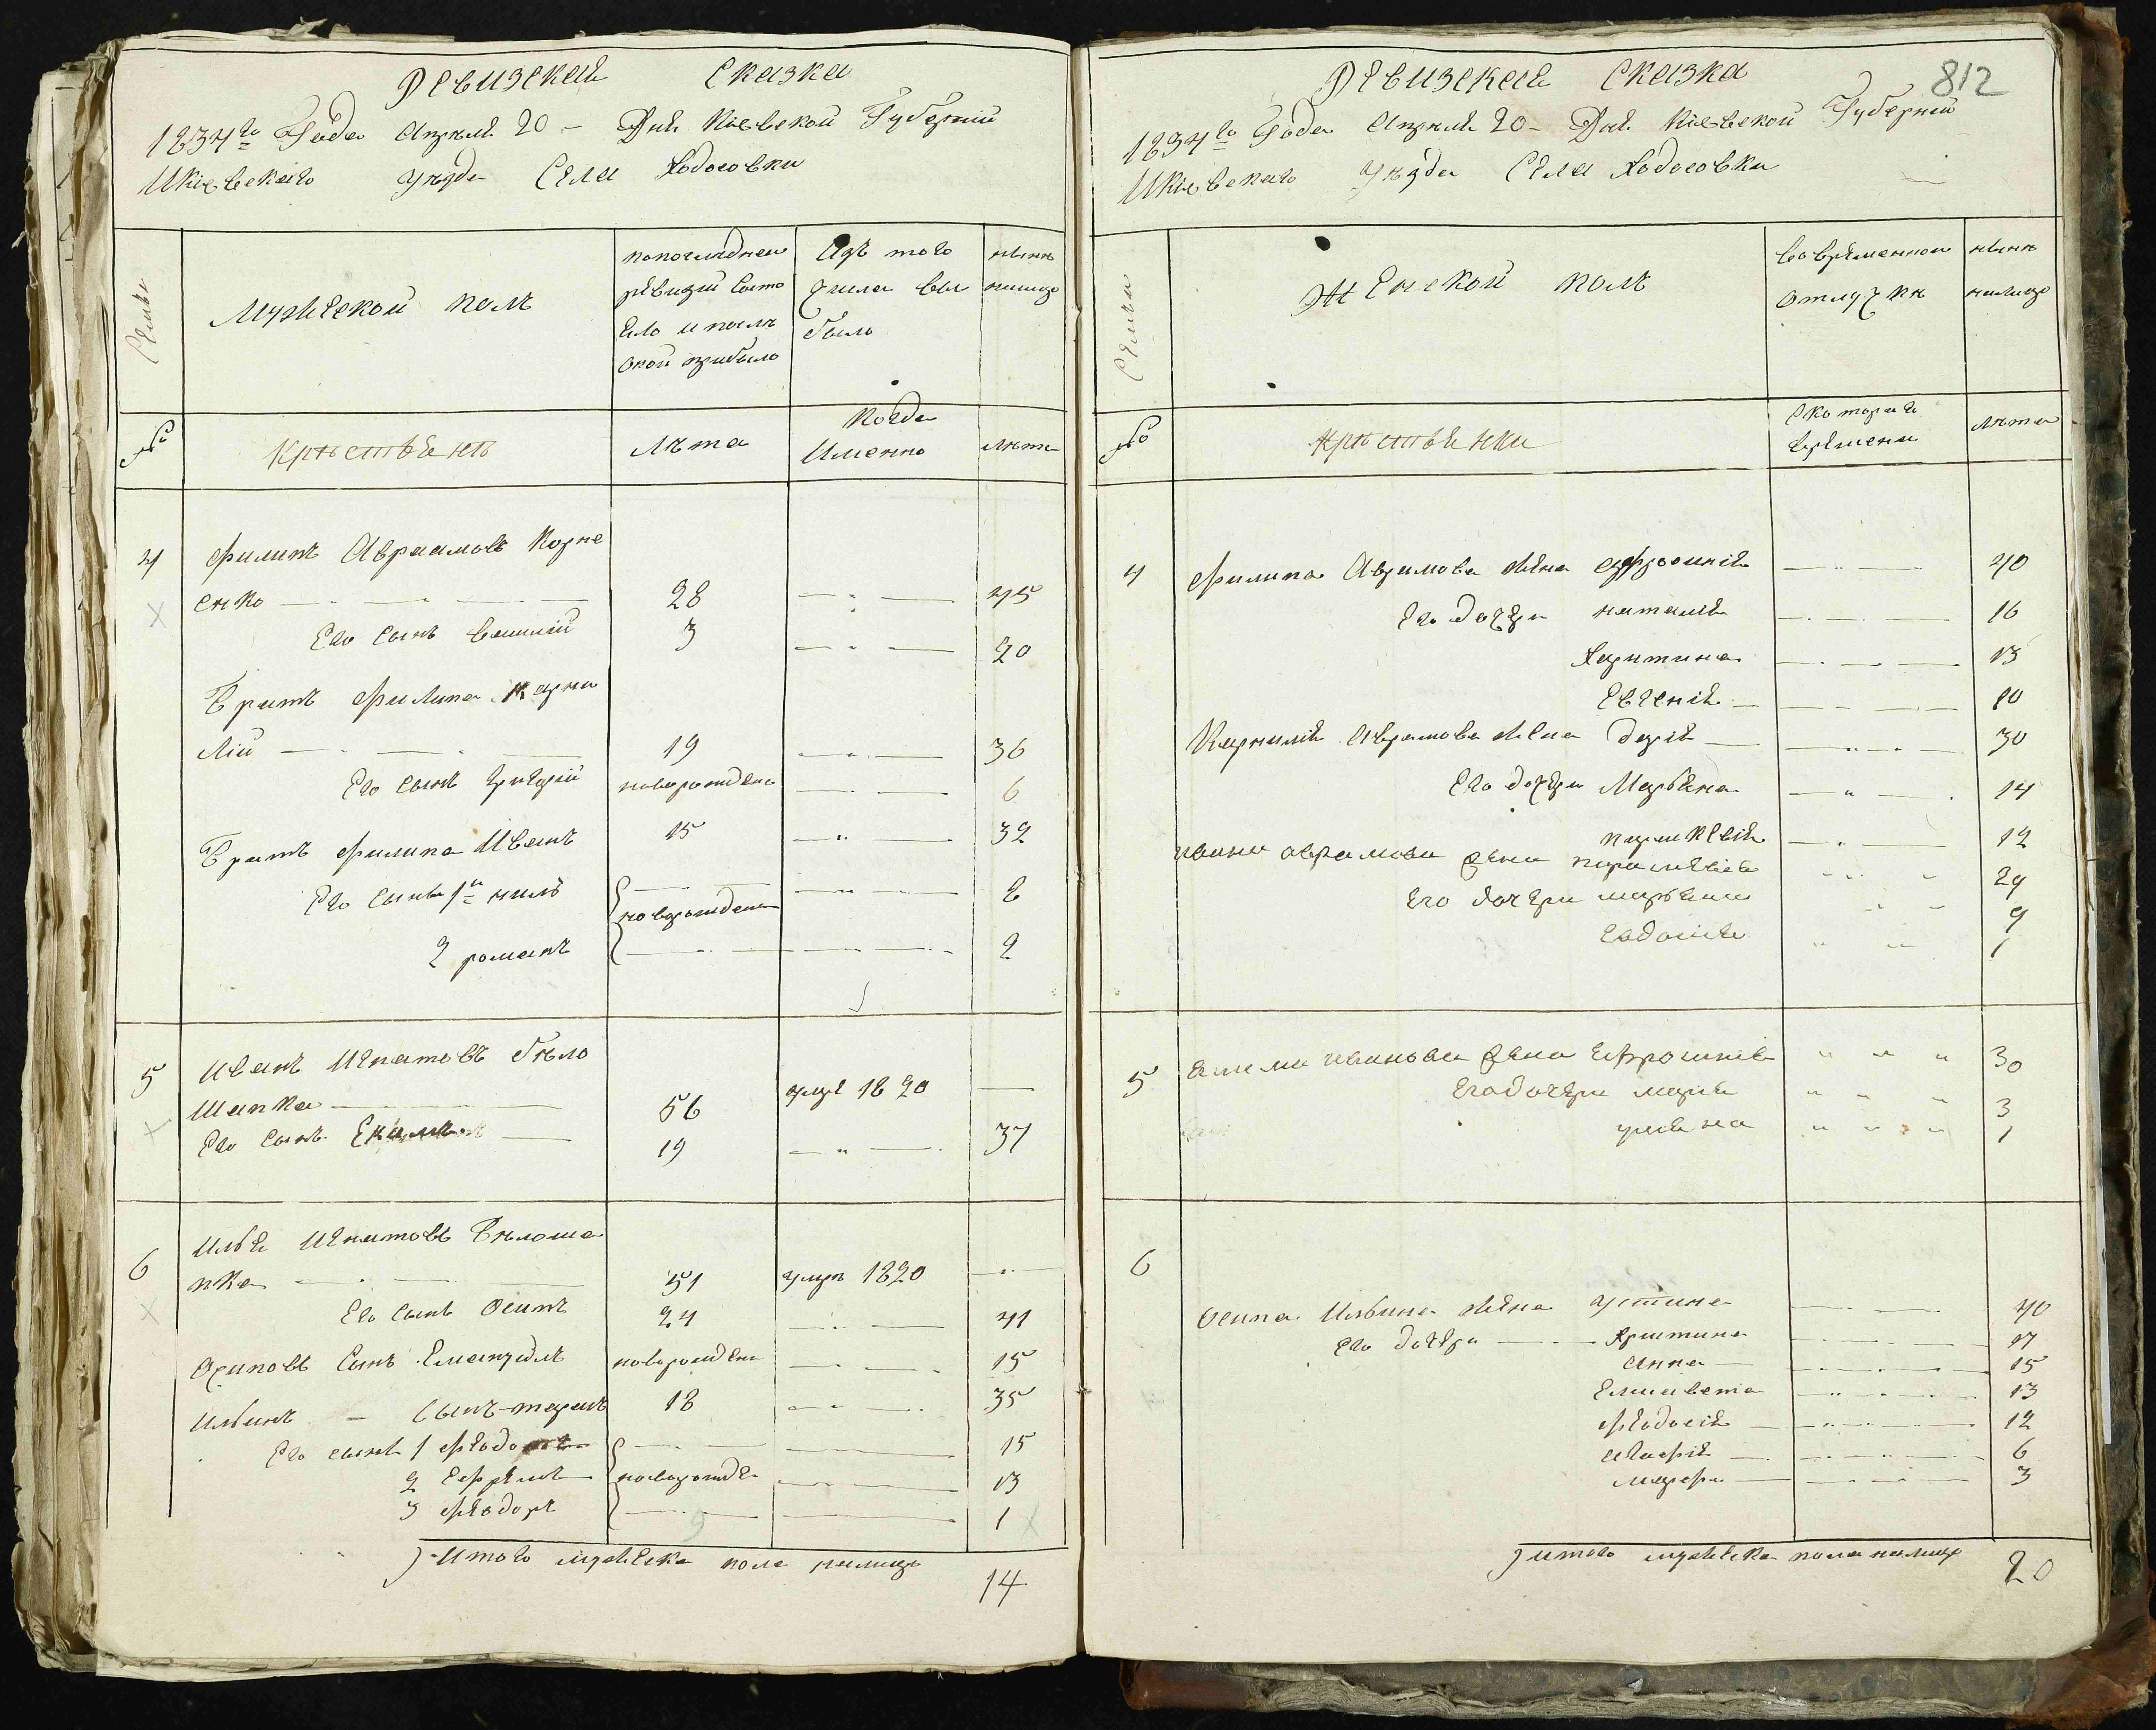 Ревизская Сказка
1834го Года Апреля 20 – Дня Киевской Губернии
И Киевского Уезда Села Ходосовки
Семьи
Мужеской полъ
по последней
ревизии состо
яло и после
оной прибыло
Изъ того
числа вы
было
ныне
налицо
№
Крестьяне
Лета
Когда
Именно
Лета
4
Филипъ Авраамовъ Корне
енко 28 45
Его сынъ Василий 3 20
Братъ Филипа Карни
лий 19 36
Его сынъ Григорий новорожденъ 6
Братъ Филипа Иванъ 15 32
Его сыны 1й Нилъ новорожденъ 8
2 романъ 2
5
Иванъ Игнатовъ Бело
шапка 56 умре 1820
Его сынъ 19 37
6
Илья Игнатовъ Белоша
пка 51 умре 1820
Его сынъ Осипъ 24 41
Осиповъ Сынъ Емануилъ новорожден 15
Ильинъ – сынъ тарасъ 18 35
Его сыны 1 Федо 15
2 Ефремъ новорожде 13
3 Федоръ 1
Итого мужеска пола налицо
14
812
Ревизская Сказка
1834го Года Апреля 20 – Дня Киевской Губернии
И Киевского Уезда Села Ходосовки
Семьи
Женской полъ
во временной
отлучке
ныне
налицо
№
Крестьянки
с которого
времени
Лета
4 Филипа Аврамова жена Ефросиния 40
Его дочери наталия 16
Харитина 13
Евгения 10
Карнилия Аврамова жена Дария 30
Его дочери Марьяна 14
параскевия 12
ивана аврамова жена параскевия 29
его дочери марьяна 9
евдокия 1
5 иванова жена Ефросиния 30
его дочери мария 3
улияна 1
6
Осипа Ильина жена устина 40
Его дочери Христина 17
Анна 15
Елисавета 13
Феодосия 12
агафия 6
марфа 3
итого мужеска пола налицо
20